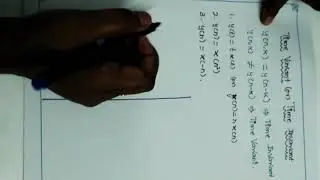 Time Variant (or) Time Invariant
y(n,k) = y(n-k) ⇒ Time Invariant
y(n,k) ≠ y(n-k) ⇒ Time Variant.
1. y(t) = t x(t) (or) y(n) = n x(n)
2. y(n) = x(n²)
3. y(n) = x(-n).